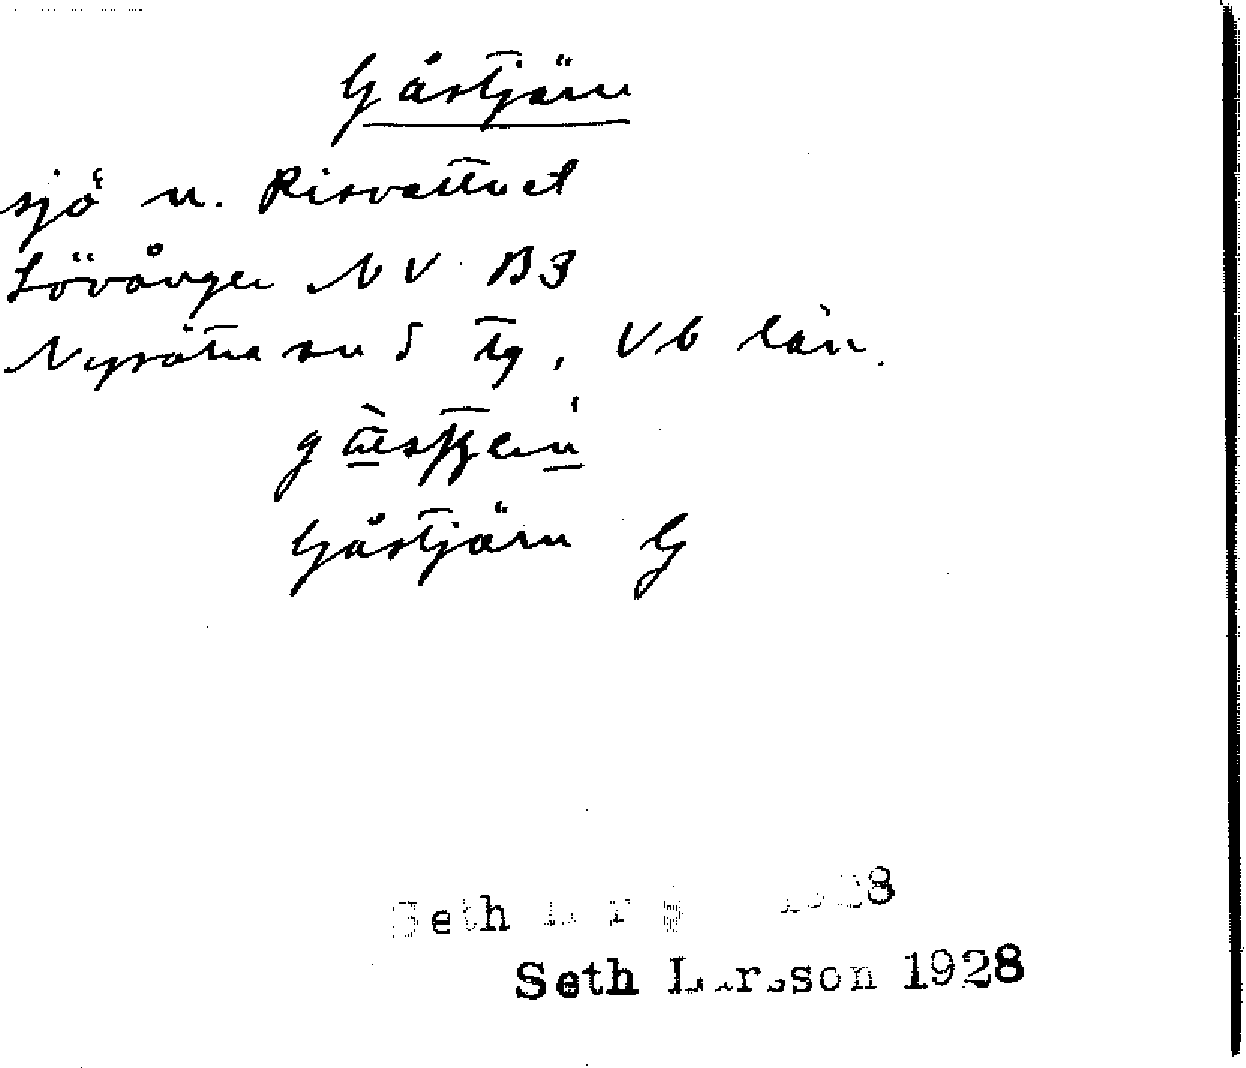 Gåstjärn
sjö n. Risvattnet
Lövånger NV B3
Nysätra sn S Tg, Vb län.
Gåstjärn G
Seth 1928
Seth Larsson 1928